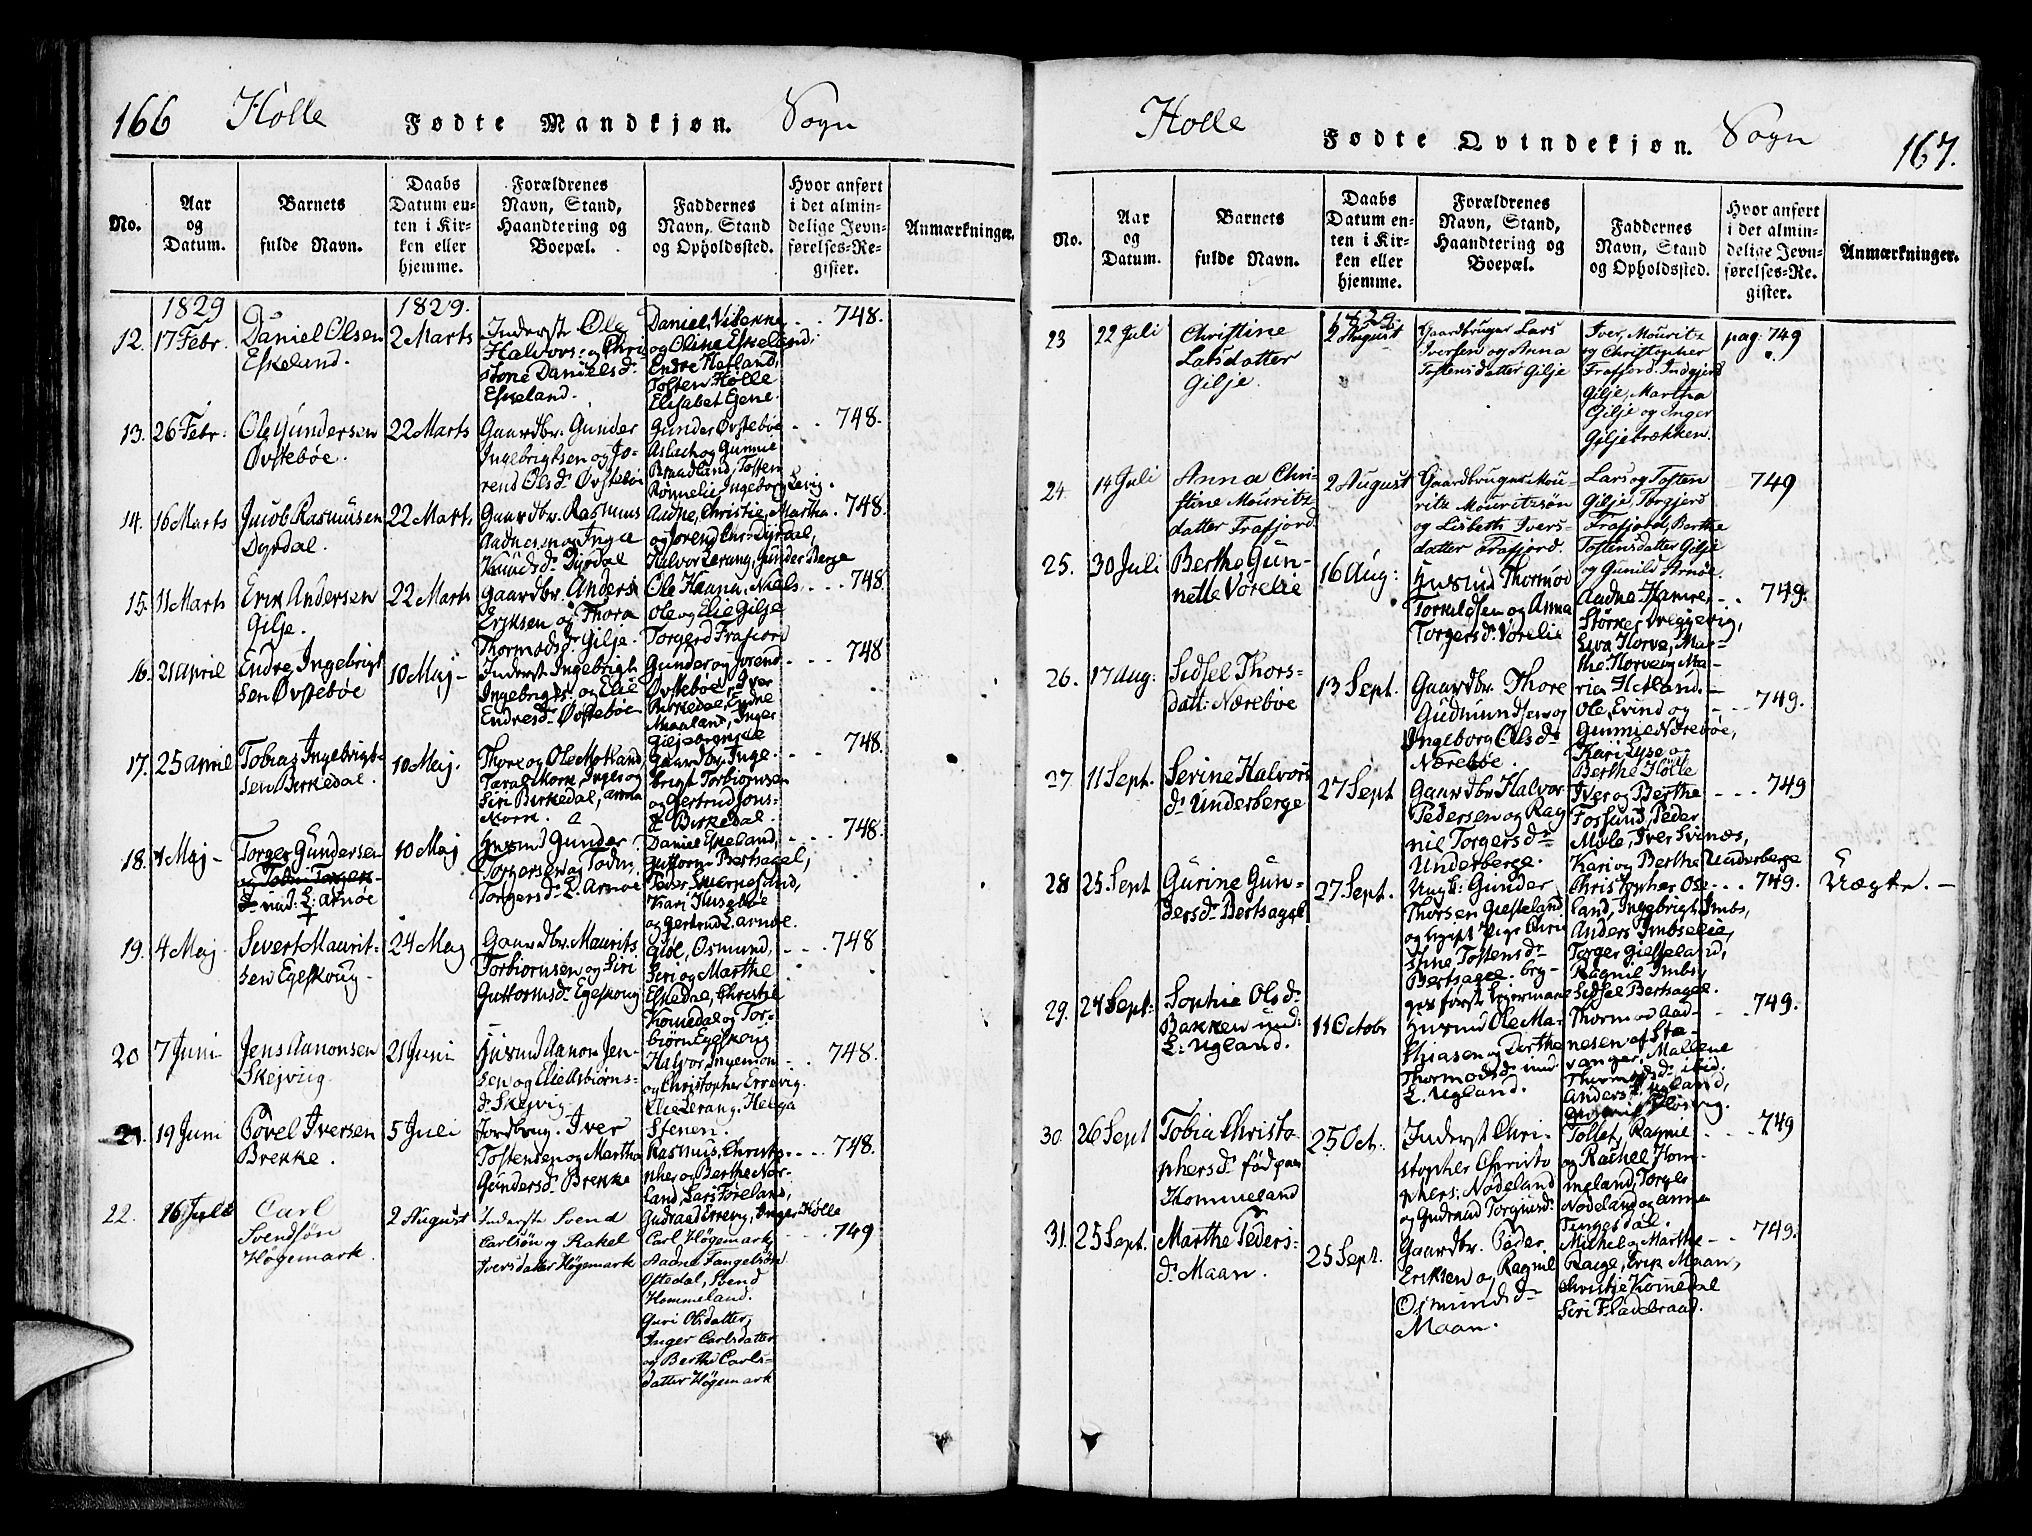 166 Holle Fødte Mandkjøn. Sogn
No.
Aar
og
Datum.
Barnets
fulde Navn.
Daabs
Datum en-
ten i Kir-
ken eller
hjemme.
Forældrenes
Navn, Stand,
Haandtering og
Boepæl.
Faddernes
Navn, Stand
og Opholdssted.
Hvor anført
i det almin-
delige Jevn-
førelses-Re-
gister.
Anmærkninger.
1829
1829.
12.
17 Febr.
Daniel Olsen
Eskeland.
2 Marts
Inderst Ole
Halvors: og Chri
stone Danielsd.
Eskeland.
Daniel, Visekne
og Oline Eskeland,
Endre Hetland,
Tosten Holle
Elisabet Eiene.
748.
13.
26 Febr:
Ole Gundersen
Øvstebøe.
22 Marts
Gaardbr. Gunder
Ingebrigtsen og Jo-
rend Olsd. Øvstebøe
Gunder Øvstebøe
Aslach og Gunnie
Braadland, Tosten
Rønnelie, Ingeborg Levig.
748.
14.
16 Marts
Jacob Rasmusen
Dyrdal.
22 Marts
Gaardbr. Rasmus
Aadnesen og Inga
Knudsd. Dyrdal
Audne, Christie, Martha
og Jorend Chr: Dyrdal,
Halvor Lerang, Gunder Berge
748.
15.
11 Marts
Erik Andersen
Gilje.
22 Marts
Gaardbr. Anders
Eriksen og Thora
Thormodsdr Gilje.
Ole Haana, Niels,
Ole og Elie Gilje
Torgerd Frafiord
748.
16.
21 April
Endre Ingebrigt
sen Øvstebøe
10 Maj
Inderst Ingebrigt
Ingebrigts: og Elie
Endresd. Øvstebøe
Gunder og Jorend
Øvstebøe, Iver
Birkedal, Endne
Maaland, Inger
Giljebrekke
748
17.
25 April
Tobias Ingebrigt-
sen Birkedal.
10 Maj.
Thore og Ole Motland,
Taral Mork, Inger og
Siri Birkedal, Anna
Mork.
Gaardbr. Inge-
brigt Torbiørnsen
og Gertrud Jons-
dr Birkedal.
748.
18.
1 Maj
Torger Gundersen
und: L: Arnøe
10 Maj
Husmd Gunder
Torgersen og Todne
Torgersd. L. Arnøe
Daniel Eskeland,
Guttorm Bertsagel,
Peder Skiernesand,
Kari Husebøe
og Gertrud L. Arnøe.
748.
19.
4 Maj
Sivert Maurit-
sen Egeskoug
24 Maj
Gaardbr. Maurits
Torbiørnsen og Siri
Guttormsd. Egeskoug
Gidøe, Osmund,
Siri og Marthe
Eskedal, Christie
Komedal og Tor-
biørn Egeskoug
748
20
7 Juni
Jens Aanonsen
Skejvig.
21 Juni
Husmd Aanon Jen-
sen og Elie Asbiørns-
d. Skejvig
Halvor Ingemon
og Christopher Errevig.
Elie Lerang. Helga
Stenen.
748.
21.
19 Juni
Povel Iversen
Brekke.
5 Juli
Jordbrug. Iver
Tostensen og Martha
Gundersd. Brekke
Rasmus, Christo-
pher og Berthe Nor-
land, Lars Føreland,
Gudraad Errevig, Inger Holle
748.
22.
16 Juli
Carl
Svendsön
Högemark.
2 August
Inderste Svend
Carlsön og Rakel
Iversdatter Högemark
Carl Högemark
Aadne Tangelsön
Oftedal, Svend
Hommeland.
Guri Olsdatter,
Inger Carlsdatter
og Berthe Carls-
datter Högemark
749
Holle Fødte Qvindekjøn. Sogn 167.
No.
Aar
og
Datum.
Barnets
fulde Navn.
Daabs
Datum en-
ten i Kir-
ken eller
hjemme.
Forældrenes
Navn, Stand,
Haandtering og
Boepæl.
Faddernes
Navn, Stand
og Opholdssted.
Hvor anført
i det almin-
delige Jevn-
førelses-Re-
gister.
Anmærkninger.
1829.
23
22 Juli
Christine
Larsdatter
Gilje.
2 August
Gaardbruger Lars
Iversen og Anna
Tostensdatter Gilje
Iver, Mouritz
og Christopher
Frafjord. Indgjerd
Gilje, Martha
Gilje og Inger
Giljebrækken.
pag: 749
24.
14 Juli
Anna Chri-
stine Mouritz
datter Frafjord.
2 August
Gaardbruger Mou-
ritz Mouritzsön
og Lisbeth Ivers-
datter Frafjord.
Lars og Tosten
Gilje, Torgjerd
Frafjord, Berthe
Tostensdatter Gilje
og Gunild Arnöe.
749
25.
30 Juli
Berthe Gun-
nette Vorelie
16 Aug:
Husmd Thormod
Torkildsen og Anna
Torgersd. Vorelie
Aadne Hamre,
Storker Dreggevig,
Siva Horve, Mar-
the Horve og Ma-
ria Hetland.
749.
26.
17 Aug:
Sidsel Thors-
datt: Nærebøe
13 Sept.
Gaardbr. Thore
Gudmundsen og
Ingeborg Olsd.
Nærebøe.
Ole, Evind og
Gunnie Nærebøe,
Kari Lyse og
Berthe Holle
749.
27.
11 Sept.
Serine Halvors
d. Underberge
27 Sept
Gaardbr. Halvor
Pedersen og Rag
nie Torgersd.
Underberge.
Iver og Berthe
Fossand, Peder
Mele, Iver Svinæs,
Kari og Bertha Underberge
749
28
25. Sept
Gurine Gun-
dersd. Bertsagel
27 Sept.
Ungk: Gunder
Thorsen Gieseland
og ugift Pige Chri
stine Tostensd.
Bertsagel. beg-
ges første Leiermaal
Christopher Ose-
land, Ingebrigt Imbs,
Anders Imbselie,
Torger Gieseland,
Ragnil Imbs,
Sidsel Bertsagel.
749.
Uægte.
29.
24 Sept:
Sophie Olsd.
Bakken und:
L: Ugland.
11 Octobr
Husmd Ole Ma-
thiasen og Dorthe
Thormodsd. und:
L. Ugland.
Thormod Aad-
nesen af Sta-
vanger, Mallene
Thormodsd. ibid.
Anders Ugland,
749.
30.
26 Sept
Tobia Christo-
phersd. föd paa
Hommeland
25 Oct.
Inderst Chri-
stopher Christo
phers: Nodeland
og Gudraad Torgiusd.
Tollef, Ragnie
og Rachel Hom-
meland, Torgils
Nodeland og Anne
Tingesdal.
749
31.
25 Sept.
Marthe Peders-
d. Maan.
25 Sept.
Gaardbr. Peder
Eriksen og Ragnil
Osmundsd.
Maan.
Michel og Marthe
Raige, Erik Maan,
Christie Komedal
Siri Fladebraad.
749.